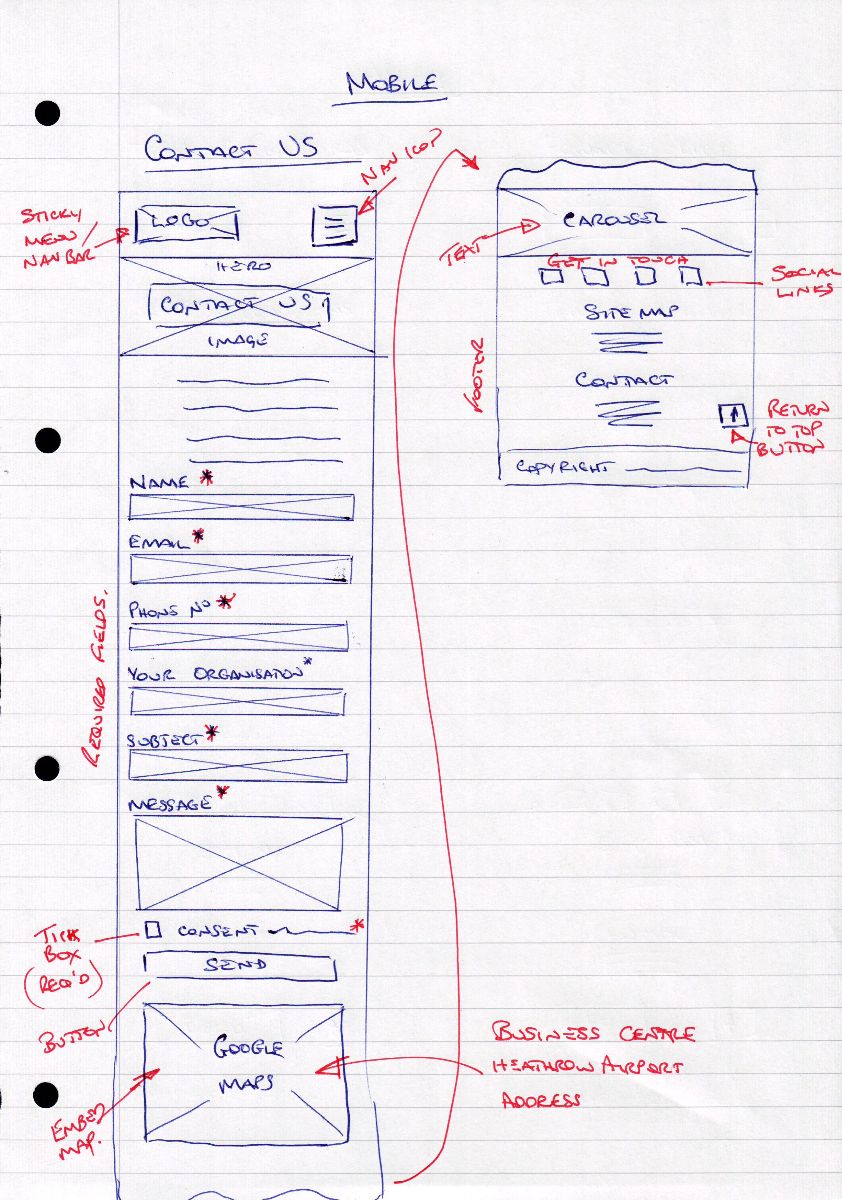 MOBILE
CONTACT US
NAV ICO?
STICKY
MENU/
NAV BAR
LOGO
HERO
CONTACT US
IMAGE
NAME *
EMAIL *
PHONE No *
YOUR ORGANISATION *
SUBJECT *
MESSAGE *
REQUIRED FIELDS.
TICK
BOX
(REQ'D)
CONSENT *
SEND
BUTTON
GOOGLE
MAPS
EMBED
MAP.
BUSINESS CENTRE
HEATHROW AIRPORT
ADDRESS
CAROUSEL
TEXT
GET IN TOUCH
SOCIAL
LINKS
SITE MAP
FOOTER
CONTACT
RETURN
TO TOP
BUTTON
COPYRIGHT